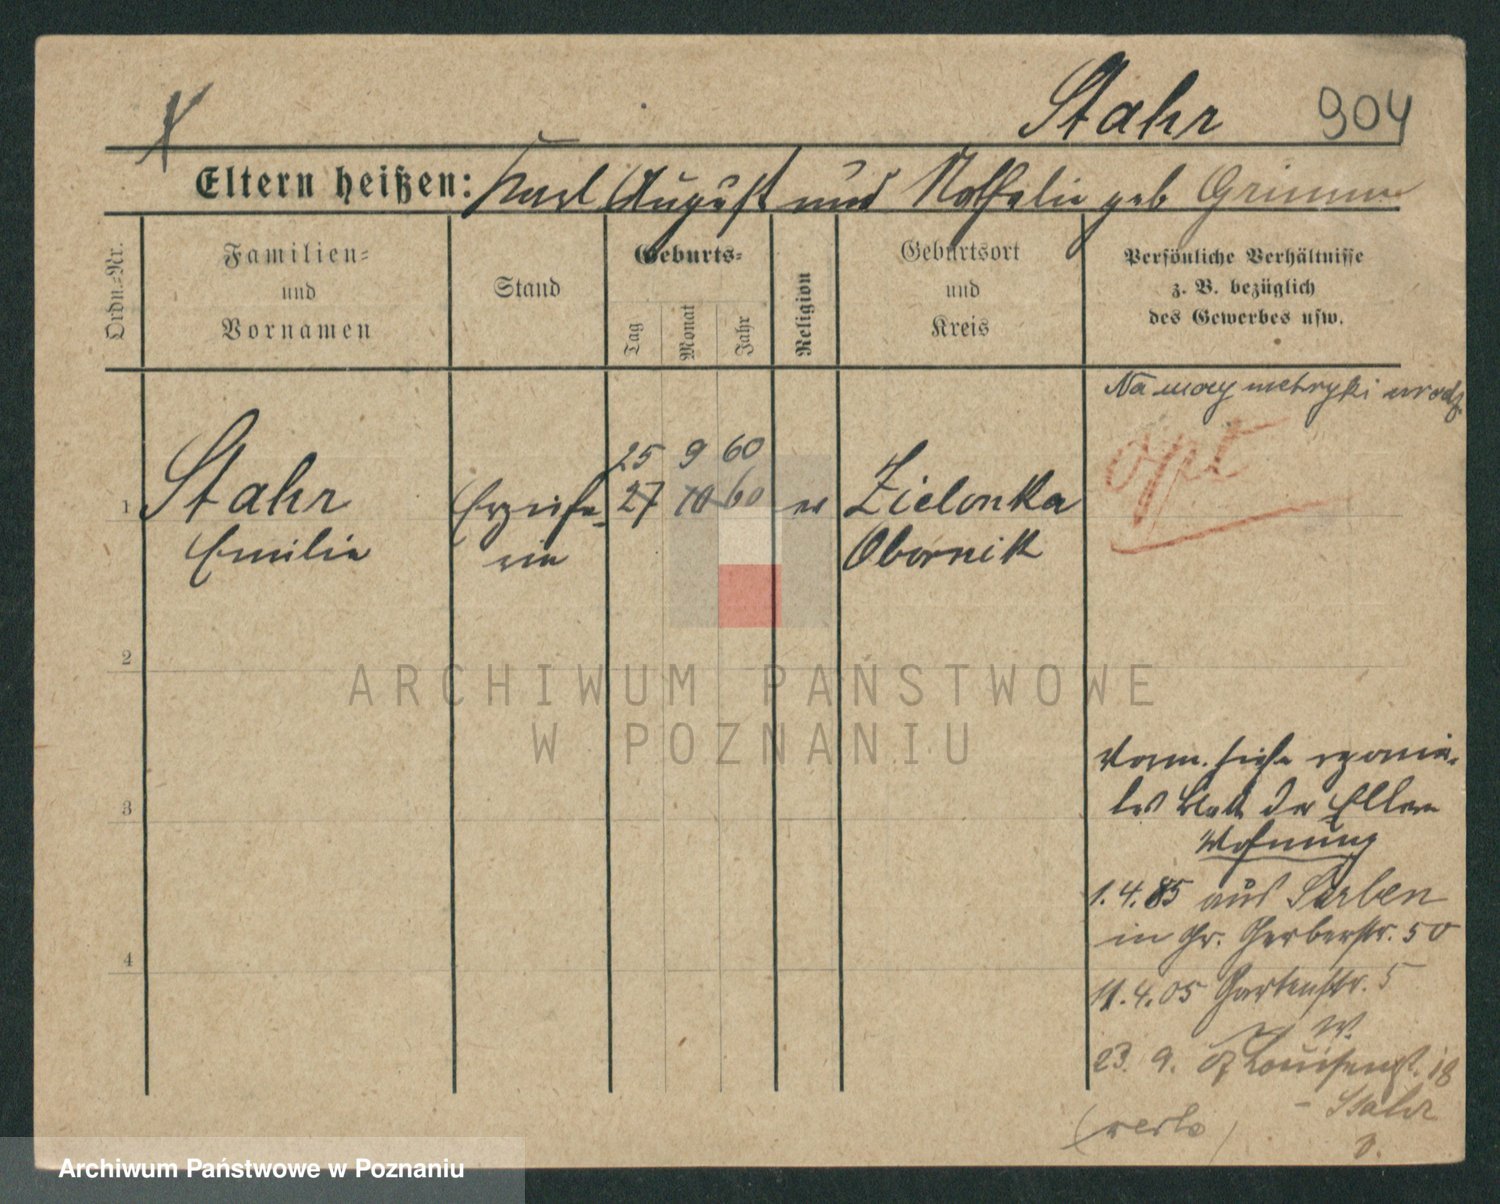 Stahr 904
Eltern heißen: Karl August und Nathalie geb Grimm
Ordn.=Nr.
Familien=
und
Vornamen
Stand
Geburts=
Tag
Monat
Jahr
Religion
Geburtsort
und
Kreis
Persönliche Verhältnisse
z. B. bezüglich
des Gewerbes usw.
Na mocy metryki urodz
opt
25 9 60
1 Stahr Erziehe= 27 10 60 ev Zielonka
Emilie rin Obornik
2
ARCHIWUM PAŃSTWOWE
W POZNANIU
3
siehe
der Eltern
Wohnung
4
1.4.85 aus Sarben
in Gr. Gerberstr. 50
11.4.05 Gartenstr. 5
W.
23. 9. 07 Louisenst. 18
- Stahr
Archiwum Państwowe w Poznaniu